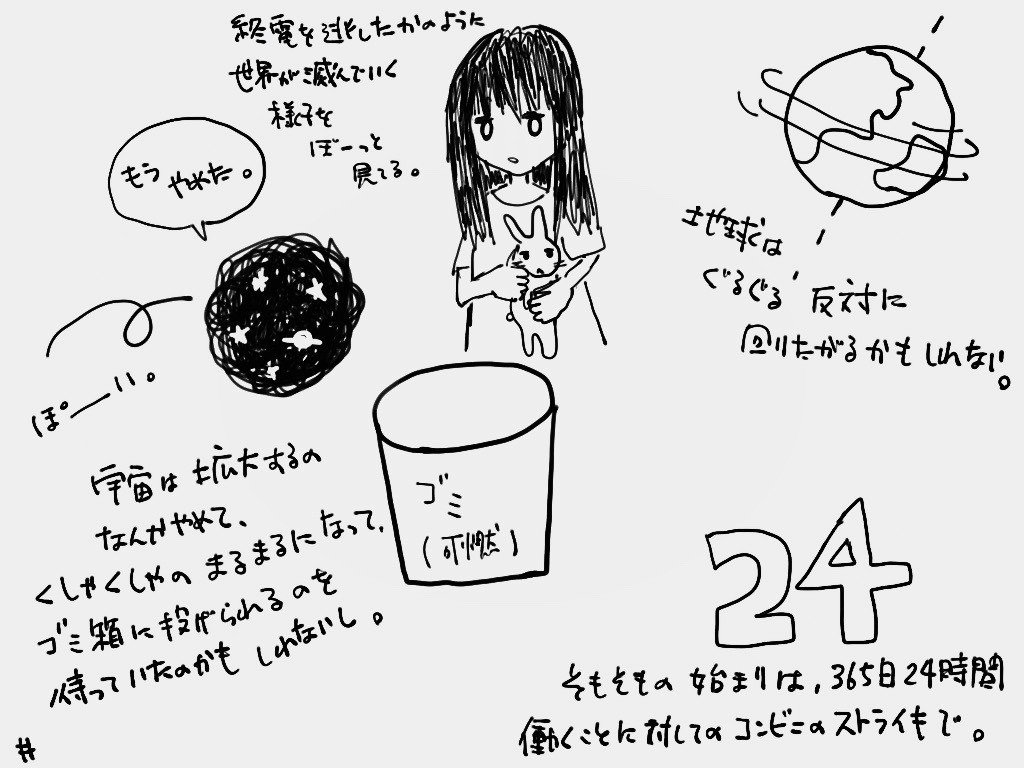 終電を逃したかのように
世界が滅んでいく
様子を
ぼーっと
見てる。
もう
やめた。
ぽーい。
地球は
ぐるぐる 反対に
回りたがるかもしれない。
宇宙は拡大するの
なんかやめて、
くしゃくしゃの まるまるになって、
ゴミ箱に投げられるのを
待っていたのかも しれないし。
ゴミ
(可燃)
24
そもそもの 始まりは、365日24時間
働くことに対してのコンビニのストライキで。
#